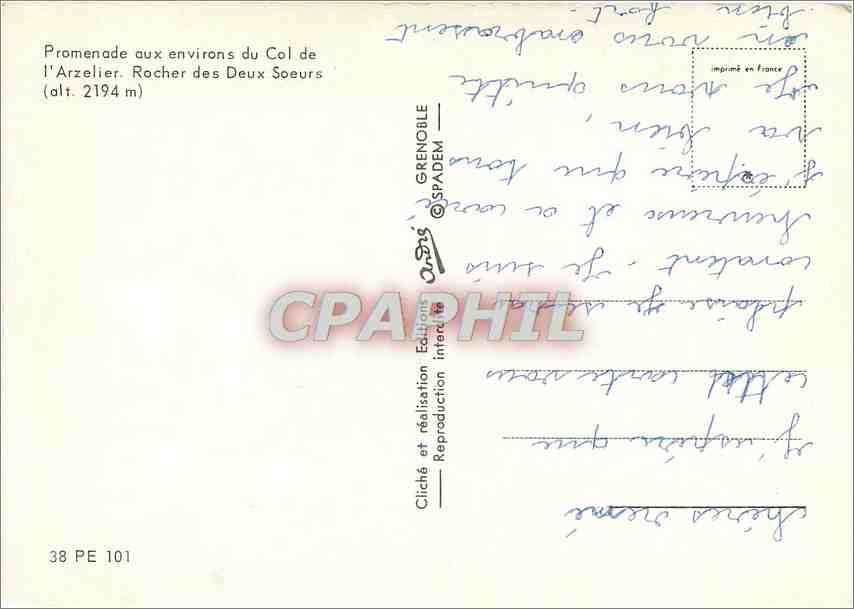 Promenade aux environs du Col de
l'Arzelier. Rocher des Deux Soeurs
(alt. 2194 m)
38 PE 101
Cliché et réalisation Editions André GRENOBLE
Reproduction interdite ©SPADEM
imprimé en France
CPAPHIL
chères mémé
j'espère que
cette carte vous
plaise je serai
contente. Je suis
heureuse et a carré
j'espère que tous
va bien,
Je vous quitte
en vous embrassent
bien fort.